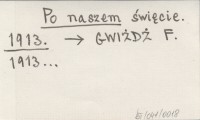 Po naszem święcie.
1913. → GWIŻDŻ F.
1913...
E/GW/0018